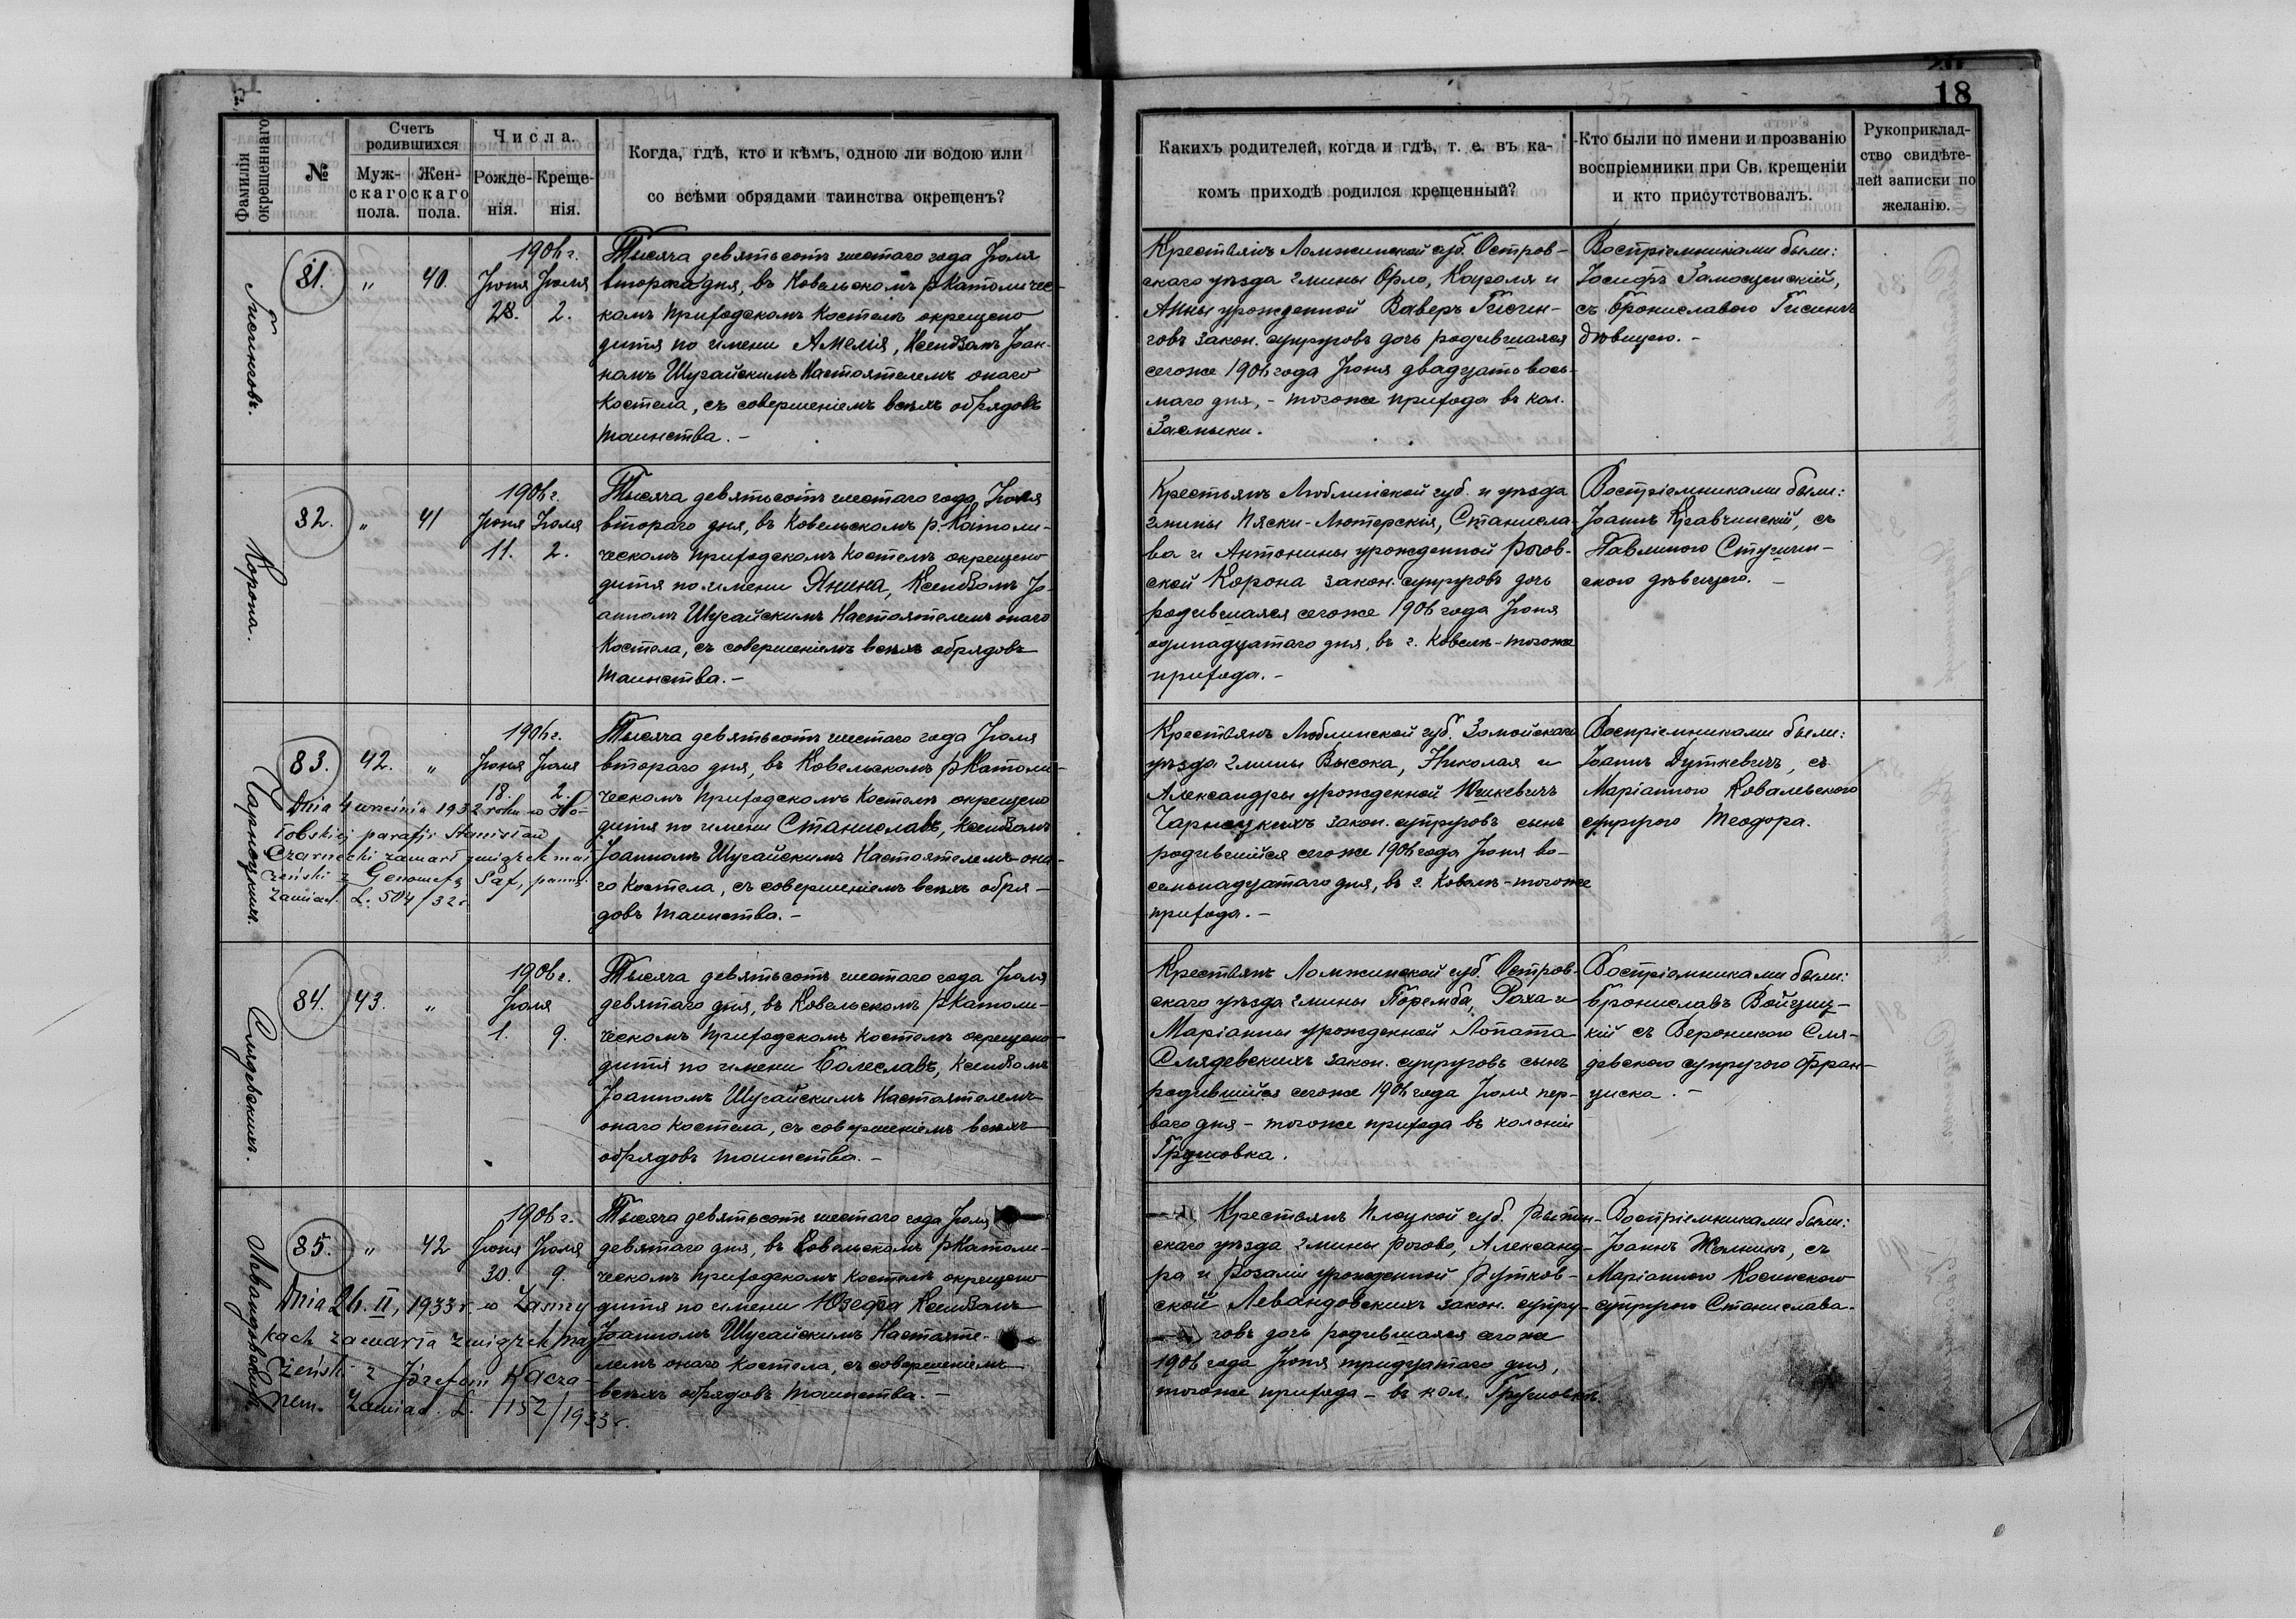 18
Фамиліи окрещеннаго
№
Счетъ родившихся
Муж-
скаго
пола.
Жен-
скаго
пола.
Числа.
Рожде-
нія.
Креще-
нія.
Когда, гдѣ, кто и кѣмъ, одною ли водою или
со всѣми обрядами таинства окрещенъ?
Какихъ родителей, когда и гдѣ, т. е. въ ка-
комъ приходѣ родился крещенный?
Кто были по имени и прозванію
воспріемники при Св. крещеніи
и кто присутствовалъ.
Рукоприклад-
ство свидѣте-
лей записки по
желанію.
81.
„
40.
1906 г.
Іюня Іюля
28. 2.
Тысяча девятьсотъ шестаго года Іюля
втораго дня, въ Ковельскомъ р.-Католичес-
комъ приходскомъ Костелѣ окрещено
дитя по имени Амелія, Ксендзомъ Іоан-
номъ Шугайскимъ Настоятелемъ онаго
Костела, съ совершеніемъ всѣхъ обрядовъ
таинства. –
Крестьянъ Ломжинской губ. Остров-
скаго уѣзда гмины Орло, Кароля и
Анны урожденной Ваверъ Гисин-
говъ закон. супруговъ дочь родившаяся
сегоже 1906 года Іюня двадцать вось-
маго дня, – тогоже прихода въ кол.
Засмыки.
Воспріемниками были:
Іосифъ Замосценскій,
съ Брониславою Гисингъ
дѣвицею. –
Корона.
82.
„
41
1906 г.
Іюня Іюля
11. 2.
Тысяча девятьсотъ шестаго года Іюля
втораго дня, въ Ковельскомъ р.-Католи-
ческомъ приходскомъ Костелѣ окрещено
дитя по имени Янина, Ксендзомъ Іо-
анномъ Шугайскимъ Настоятелемъ онаго
Костела, съ совершеніемъ всѣхъ обрядовъ
таинства. –
Крестьянъ Люблинской губ. и уѣзда
гмины Пяски-Лютерскія, Станисла-
ва и Антонины урожденной Рогов-
ской Корона закон. супруговъ дочь
родившаяся сегоже 1906 года Іюня
одинадцатаго дня, въ г. Ковелѣ – тогоже
прихода. –
Воспріемниками были:
Іоаннъ Кравчинскій, съ
Павлиною
скою дѣвицею. –
83.
42.
„
1906 г.
Іюня Іюля
18. 2.
Dnia 4 września 1932 roku w Ho-
łobskiej parafji Stanisław
Czarnecki zawarł związek mał-
żeński z Genowefą Saf, panną.
Zawiad. L. 504/32 r.
Тысяча девятьсотъ шестаго года Іюля
втораго дня, въ Ковельскомъ р.-Католи-
ческомъ приходскомъ Костелѣ окрещено
дитя по имени Станиславъ, Ксендзомъ
Іоанномъ Шугайскимъ Настоятелемъ она-
го Костела, съ совершеніемъ всѣхъ обря-
довъ таинства. –
Крестьянъ Люблинской губ. Замойскаго
уѣзда гмины Высока, Николая и
Александры урожденной Юшкевичъ
Чарнецкихъ закон. супруговъ сынъ
родившійся сегоже 1906 года Іюня во-
семнадцатаго дня, въ г. Ковелѣ – тогоже
прихода. –
Воспріемниками были:
Іоаннъ Дуткевичъ, съ
Маріанною Ковальскою
супругою Теодора.
Слядевскихъ.
84.
43.
„
1906 г.
Іюля
1. 9.
Тысяча девятьсотъ шестаго года Іюля
девятаго дня, въ Ковельскомъ р.-Католи-
ческомъ приходскомъ Костелѣ окрещено
дитя по имени Болеславъ, Ксендзомъ
Іоанномъ Шугайскимъ Настоятелемъ
онаго Костела, съ совершеніемъ всѣхъ
обрядовъ таинства. –
Крестьянъ Ломжинской губ. Остров-
скаго уѣзда гмины Поремба, Роха и
Маріанны урожденной Лопата
Слядевскихъ закон. супруговъ сынъ
родившійся сегоже 1906 года Іюля пер-
ваго дня – тогоже прихода въ колоніи
Грушовка.
Воспріемниками были:
Брониславъ Войциц-
кій съ Вероникою Сля-
девскою супругою Фран-
циска. –
85.
„
42
1906 г.
Іюня Іюля
30. 9.
Dnia 26. II, 1933 r. w Zasmy
kach zawarła związek mał
żeński z Józefem Kacza-
nem. Zawiad. L. 152/1933 r.
Тысяча девятьсотъ шестаго года Іюля
девятаго дня, въ Ковельскомъ р.-Католи-
ческомъ приходскомъ Костелѣ окрещено
дитя по имени Юзефа Ксендзомъ
Іоанномъ Шугайскимъ Настояте-
лемъ онаго Костела, съ совершеніемъ
всѣхъ обрядовъ таинства. –
Крестьянъ Плоцкой губ. Рыпин-
скаго уѣзда гмины Рогово, Александ-
ра и Розаліи урожденной Рутков-
ской Левандовскихъ закон. супру-
говъ дочь родившаяся сегоже
1906 года Іюня тридцатаго дня,
тогоже прихода – въ кол. Грушовкѣ.
Воспріемниками были:
Іоаннъ съ
Маріанною Косинскою
супругою Станислава.